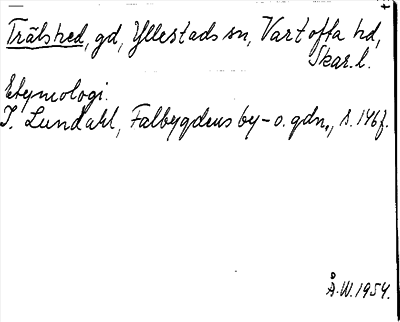 Trälshed, gd, Yllestads sn, Vartofta hd,
Skar. l.
Etymologi.
I. Lundahl, Falbygdens by- o. gdn., s. 146f.
Å.W. 1954.